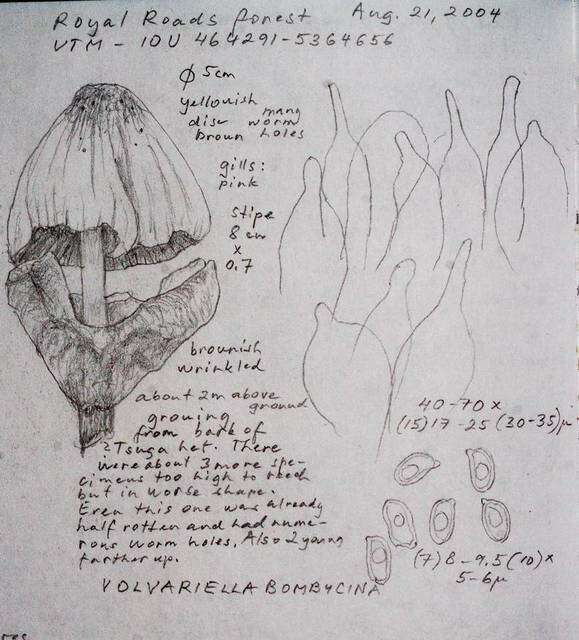 Royal Roads forest Aug. 21, 2004
UTM - 10U 464291-5364656
ϕ 5cm
yellowish
disc
brown
many
worm
holes
gills:
pink
stipe
8 cm
x
0.7
brownish
wrinkled
about 2m above
ground
growing
from bark of
?Tsuga het. There
were about 3 more spe-
cimens too high to reach
but in worse shape.
Even this one was already
half rotten and had nume-
rous worm holes. Also 2 young
farther up.
40-70 x
(15)17-25(30-35)μ
(7)8-9.5(10)x
5-6μ
VOLVARIELLA BOMBYCINA